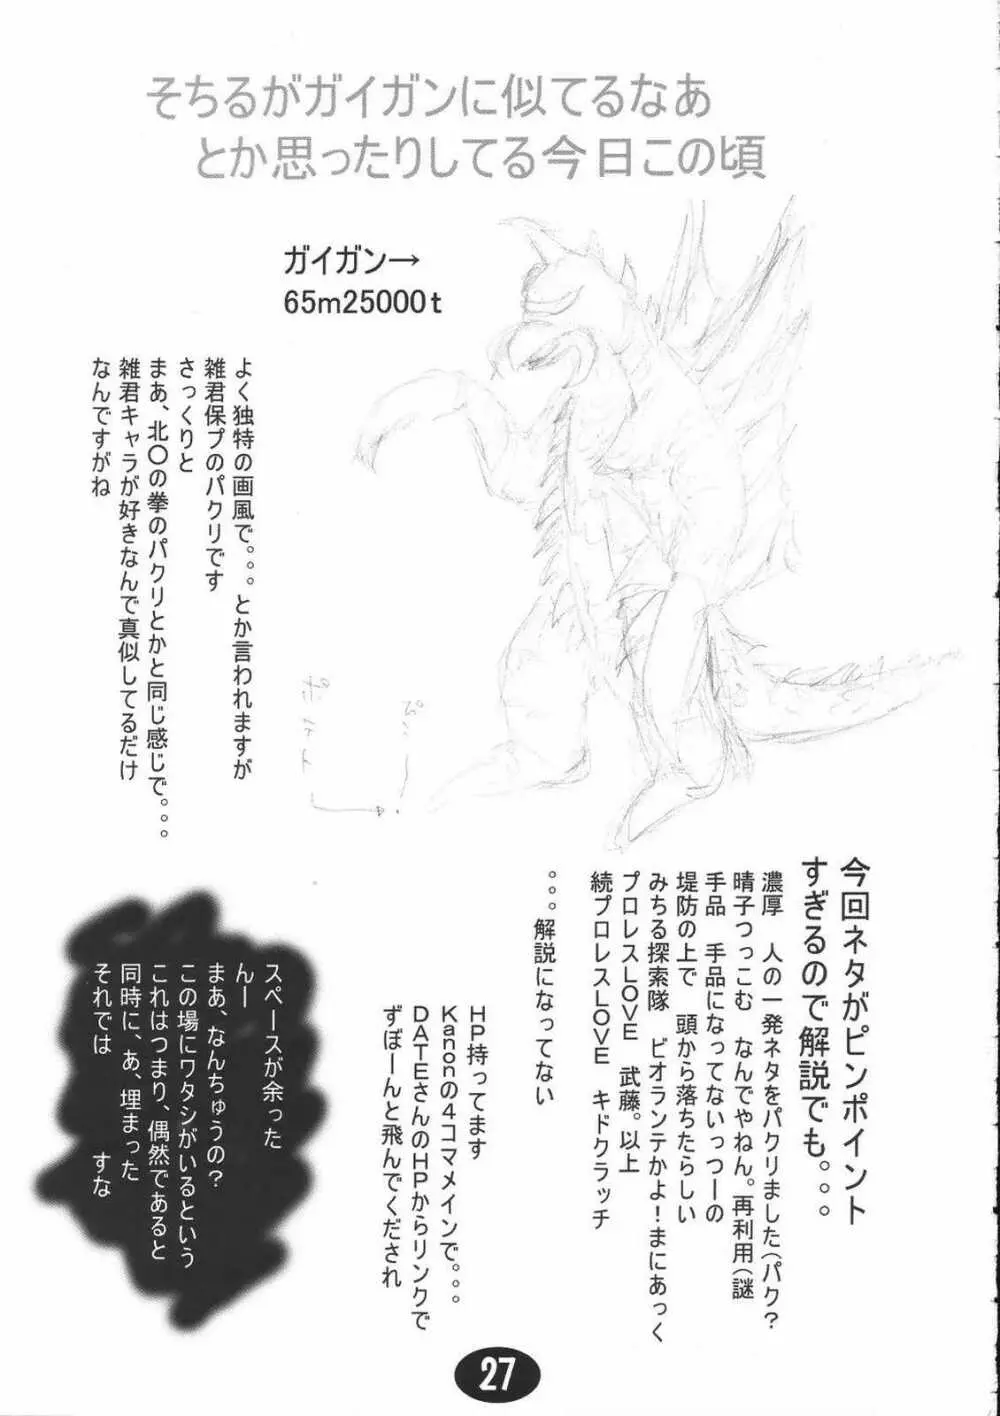 そちるがガイガンに似てるなあ
とか思ったりしてる今日この頃
ガイガン→
65m25000t
よく独特の画風で。。。とか言われますが
雑君保プのパクリです
さっくりと
まあ、北〇の拳のパクリとかと同じ感じで。。。
雑君キャラが好きなんで真似してるだけ
なんですがね
今回ネタがピンポイント
すぎるので解説でも。。。
濃厚　人の一発ネタをパクリました(パク?
晴子つっこむ　なんでやねん。再利用(謎
手品　手品になってないっつーの
堤防の上で　頭から落ちたらしい
みちる探索隊　ビオランテかよ!まにあっく
プロレスLOVE　武藤。以上
続プロレスLOVE　キドクラッチ
。。。解説になってない
HP持ってます
Kanonの4コマメインで。。。
DATEさんのHPからリンクで
ずぼーんと飛んでくだされ
スペースが余った
んー
まあ、なんちゅうの?
この場にワタシがいるという
これはつまり、偶然であると
同時に、あ、埋まった
それでは　　　すな
27